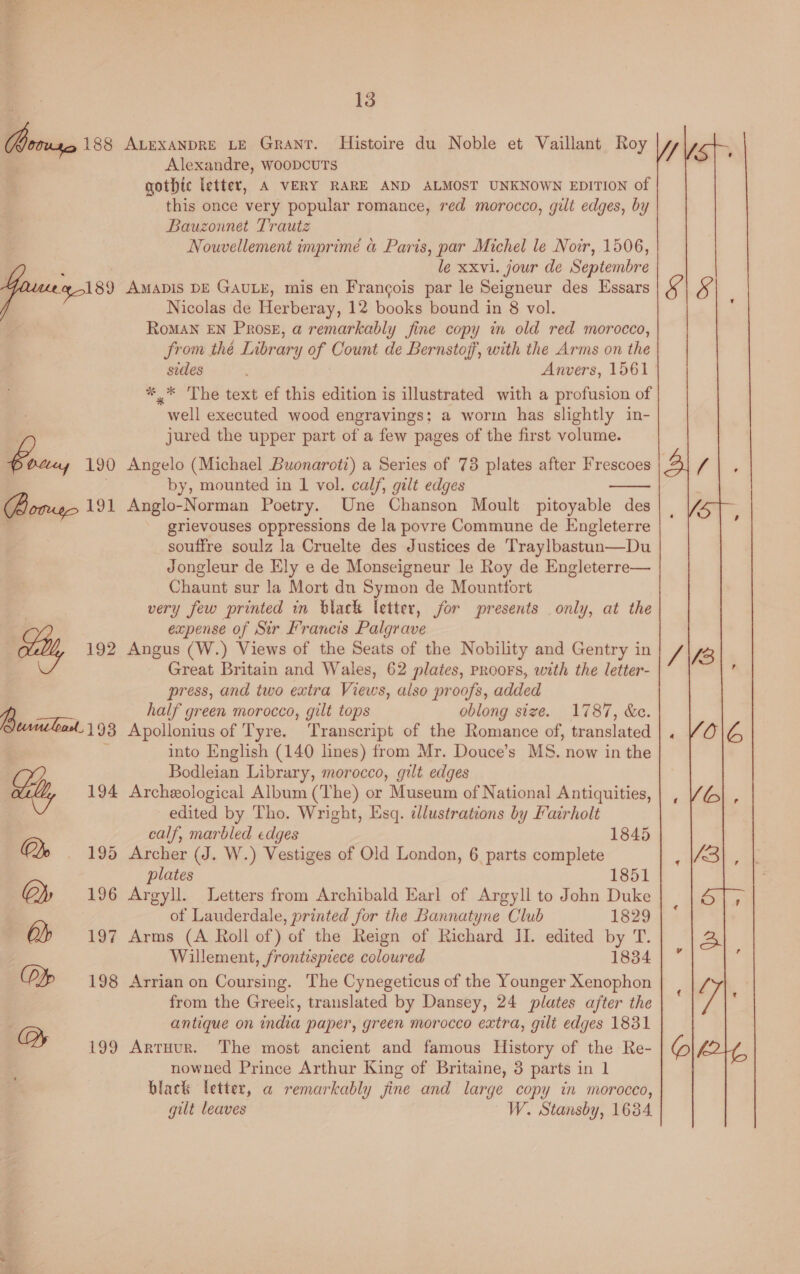 13
188 ALEXANDRE LE GRANT. Histoire du Noble et Vaillant Roy
Alexandre, WOODCUTS
gothic letter, A VERY RARE AND ALMOST UNKNOWN EDITION of
this once very popular romance, red morocco, gilt edges, by
Bauzonnet Trautz
Nouvellement imprimé a Paris, par Michel le Noir, 1506,
le xxvi. jour de Septembre
189 AMADIS DE GAULE, mis en François par le Seigneur des Essars 8 8
Nicolas de Herberay, 12 books bound in 8 vol.
ROMAN EN PROSE, a remarkably fine copy in old red morocco,
from the Library of Count de Bernstoff, with the Arms on the
sides Anvers, 1561
*** The text ef this edition is illustrated with a profusion of
well executed wood engravings; a worm has slightly in-
jured the upper part of a few pages of the first volume.
190 Angelo (Michael Buonaroti) a Series of 73 plates after Frescoes 3 1
by, mounted in 1 vol. calf, gilt edges ——
191 Anglo-Norman Poetry. Une Chanson Moult pitoyable des 15
grievouses oppressions de la povre Commune de Engleterre
souffre soulz la Cruelte des Justices de Traylbastun—Du
Jongleur de Ely e de Monseigneur le Roy de Engleterre—
Chaunt sur la Mort du Symon de Mountfort
very few printed in black letter, for presents only, at the
expense of Sir Francis Palgrave
Lilly 192 Angus (W.) Views of the Seats of the Nobility and Gentry in 1 13
Great Britain and Wales, 62 plates, PROOFS, with the letter-
press, and two extra Views, also proofs, added
half green morocco, gilt tops oblong size. 1787, &c.
193 Apollonius of Tyre. Transcript of the Romance of, translated 10 6
into English (140 lines) from Mr. Douce's MS. now in the
Bodleian Library, morocco, gilt edges
Lilly 194 Archæological Album (The) or Museum of National Antiquities, 16
edited by Tho. Wright, Esq. illustrations by Fairholt
calf, marbled edges 1845
Do 195 Archer (J. W.) Vestiges of Old London, 6 parts complete 13
plates 1851
Do 196 Argyll. Letters from Archibald Earl of Argyll to John Duke 5
of Lauderdale, printed for the Bannatyne Club 1829
Do 197 Arms (A Roll of) of the Reign of Richard II. edited by T. 3
Willement, frontispiece coloured 1834
Do 198 Arrian on Coursing. The Cynegeticus of the Younger Xenophon 17
from the Greek, translated by Dansey, 24 plates after the
antique on india paper, green morocco extra, gilt edges 1831
Do 199 ARTHUR. The most ancient and famous History of the Re- 6 12 6
nowned Prince Arthur King of Britaine, 3 parts in 1
black letter, a remarkably fine and large copy in morocco,
gilt leaves W. Stansby, 1634